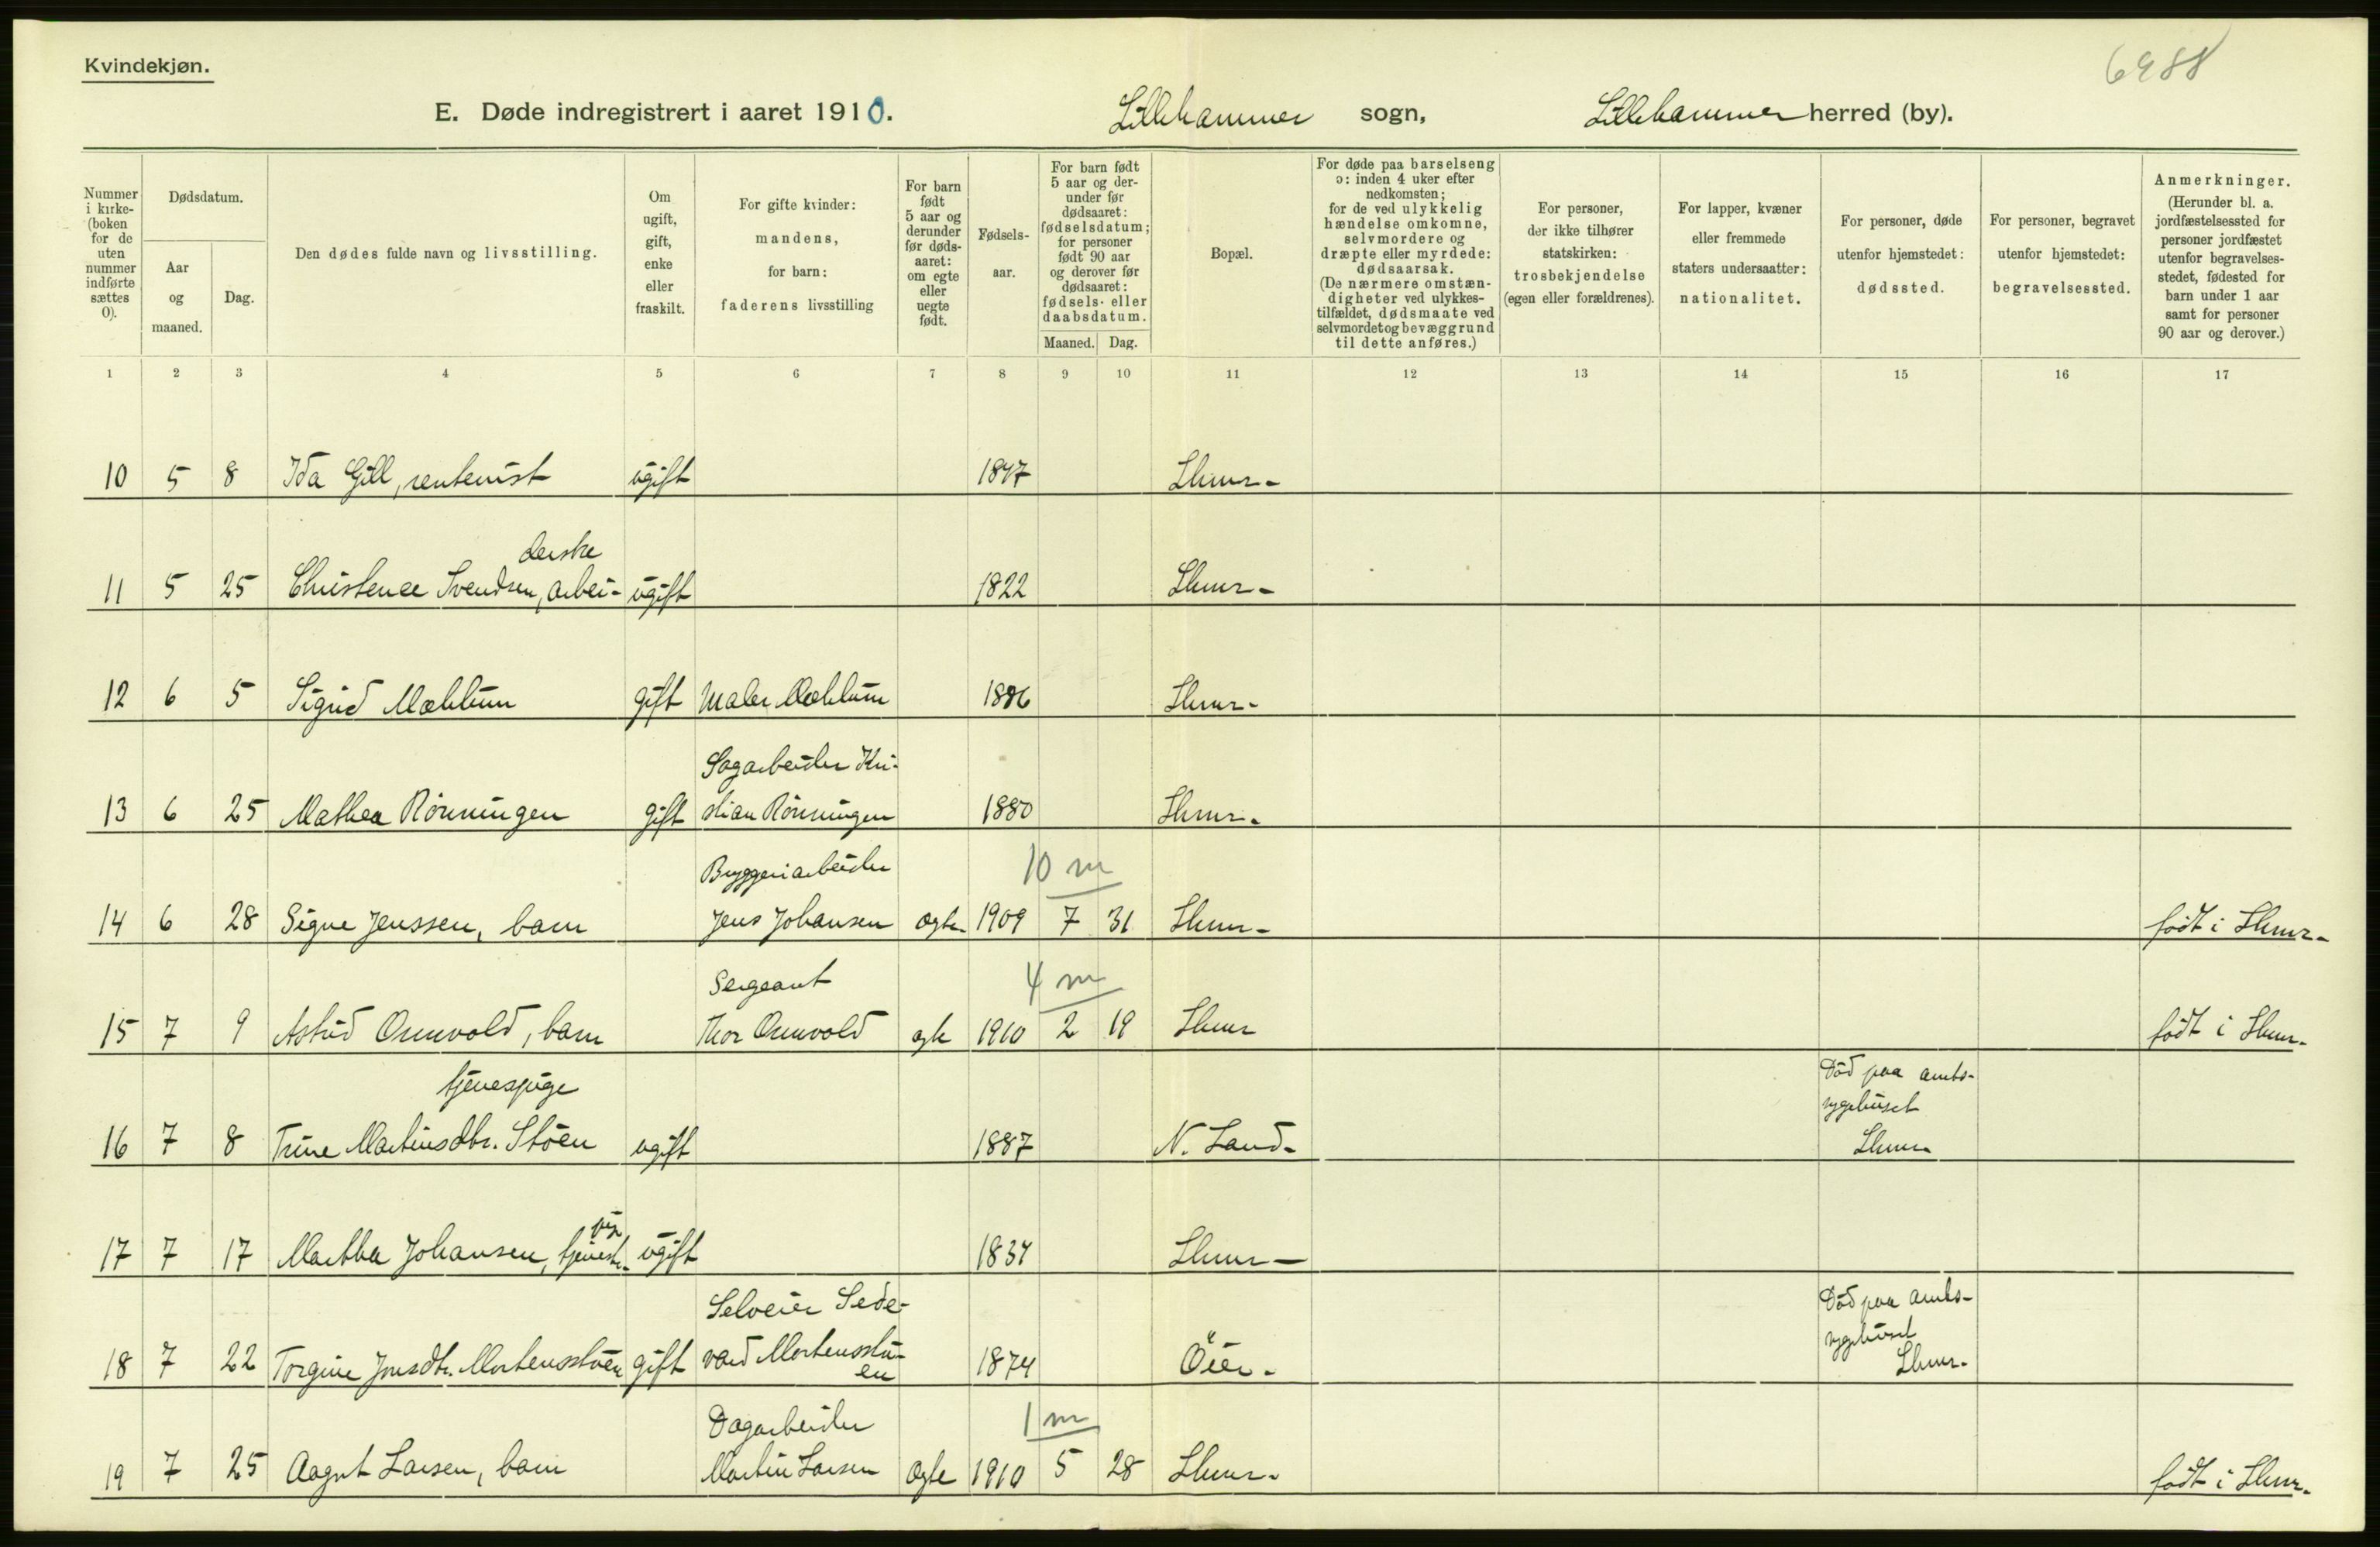 Kvindekjøn.
6988
E. Døde indregistrert i aaret 1910. Lillehammer sogn, Lillehammer herred (by).
Nummer i kirke- (boken for de uten nummer indførte sættes 0).
Dødsdatum.
Aar og maaned.
Dag.
Den dødes fulde navn og livsstilling.
Om ugift, gift, enke eller fraskilt.
For gifte kvinder: mandens, for barn: faderens livsstilling
For barn født 5 aar og derunder før døds- aaret: om egte eller uegte født.
Fødsels- aar.
For barn født 5 aar og der- under før dødsaaret: fødselsdatum; for personer født 90 aar og derover før dødsaaret: fødsels- eller daabsdatum.
Maaned. Dag.
Bopæl.
For døde paa barselseng ɔ: inden 4 uker efter nedkomsten; for de ved ulykkelig hændelse omkomne, selvmordere og dræpte eller myrdede: dødsaarsak. (De nærmere omstæn- digheter ved ulykkes- tilfældet, dødsmaate ved selvmordet og bevæggrund til dette anføres.)
For personer, der ikke tilhører statskirken: trosbekjendelse (egen eller forældrenes).
For lapper, kvæner eller fremmede staters undersaatter: nationalitet.
For personer, døde utenfor hjemstedet: dødssted.
For personer, begravet utenfor hjemstedet: begravelsessted.
Anmerkninger. (Herunder bl. a. jordfæstelsessted for personer jordfæstet utenfor begravelses- stedet, fødested for barn under 1 aar samt for personer 90 aar og derover.)
1 2 3 4 5 6 7 8 9 10 11 12 13 14 15 16 17
10 5 8 Ida Gill, rentenist ugift 1847 Lhmr-
derske
11 5 25 Christence Svendsen, arbei- ugift 1822 Lhmr-
12 6 5 Sigrid Mæhlum gift Maler Mæhlum 1886 Lhmr-
Sagarbeider Kri-
13 6 25 Mathea Rönningen gift stian Rönningen 1880 Lhmr-
Bryggeriarbeider 10 m
14 6 28 Signe Jenssen, barn Jens Johansen ægte 1909 7 31 Lhmr- født i Lhmr-
Sergeant 4 m
15 7 9 Astrid Ounvold, barn Thor Ounvold ægte 1910 2 19 Lhmr født i Lhmr-
tjenespige Död paa amts-
sygehuset
16 7 8 Trine Martinsdtr. Stöen ugift 1887 N. Land- Lhmr
pige
17 7 17 Marthea Johansen, tjeneste- ugift 1834 Lhmr-
Selveier Sede- Död paa amts-
sygehuset
18 7 22 Torgine Jonsdtr. Mortensstuen gift vard Mortensstu- 1874 Öier- Lhmr-
en
Dagarbeider 1 m
19 7 25 Aagot Larsen, barn Martin Larsen ægte 1910 5 28 Lhmr- født i Lhmr-